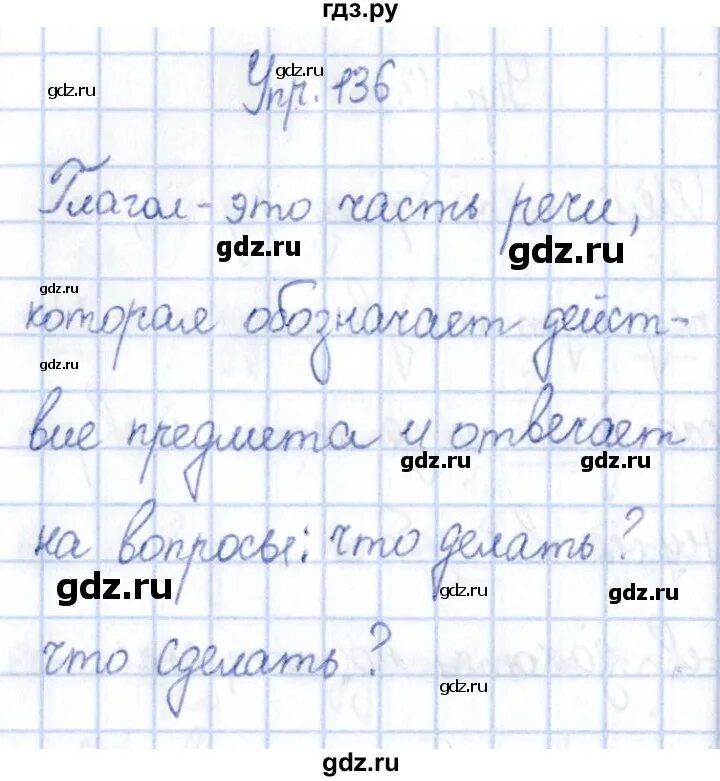 гдз.ру
gdz.ru
gdz.ru
Упр. 136
Глагол - это часть речи,
gdz.ru
gdz.ru
gdz.ru
которая обозначает дейст-
gdz.ru
вие предмета и отвечает
gdz.ru
gdz.ru
на вопросы: что делать?
gdz.ru
gdz.ru
gdz.ru
что сделать?
gdz.ru
gdz.ru